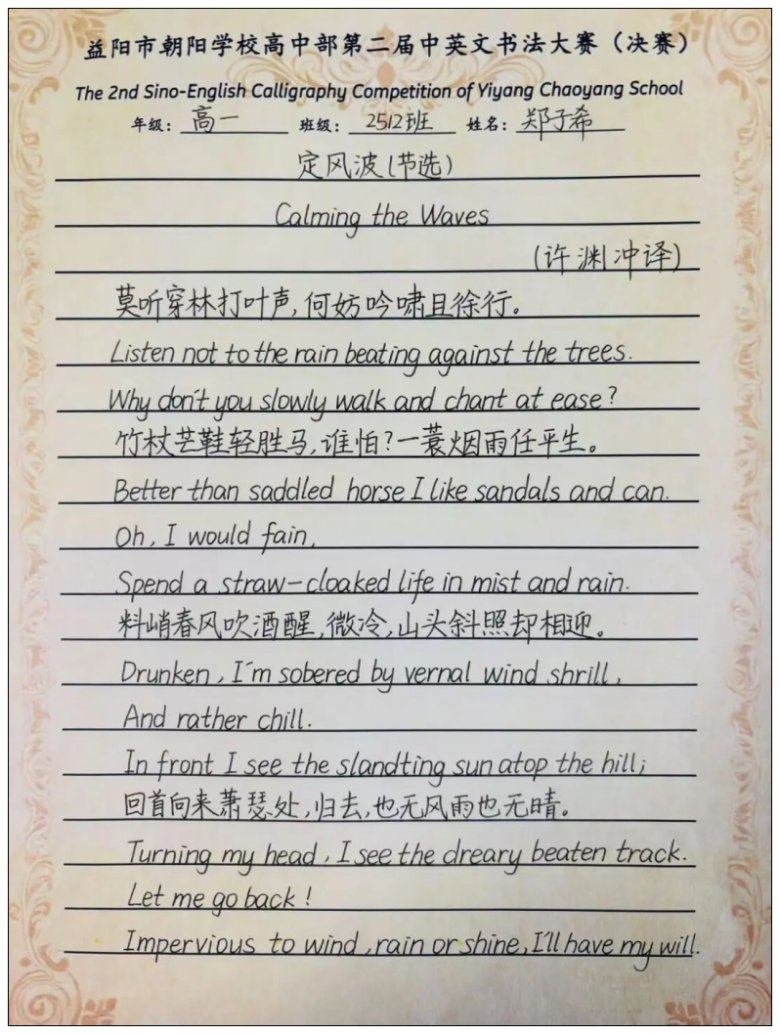 益阳市朝阳学校高中部第二届中英文书法大赛（决赛）
The 2nd Sino-English Calligraphy Competition of Yiyang Chaoyang School
年级：高一 班级：2512班 姓名：郑子希
定风波(节选)
Calming the Waves
(许渊冲译)
莫听穿林打叶声,何妨吟啸且徐行。
Listen not to the rain beating against the trees.
Why don't you slowly walk and chant at ease?
竹杖芒鞋轻胜马,谁怕?一蓑烟雨任平生。
Better than saddled horse I like sandals and can.
Oh, I would fain,
Spend a straw-cloaked life in mist and rain.
料峭春风吹酒醒,微冷,山头斜照却相迎。
Drunken, I'm sobered by vernal wind shrill,
And rather chill.
In front I see the slandting sun atop the hill;
回首向来萧瑟处,归去,也无风雨也无晴。
Turning my head, I see the dreary beaten track.
Let me go back!
Impervious to wind, rain or shine, I'll have my will.